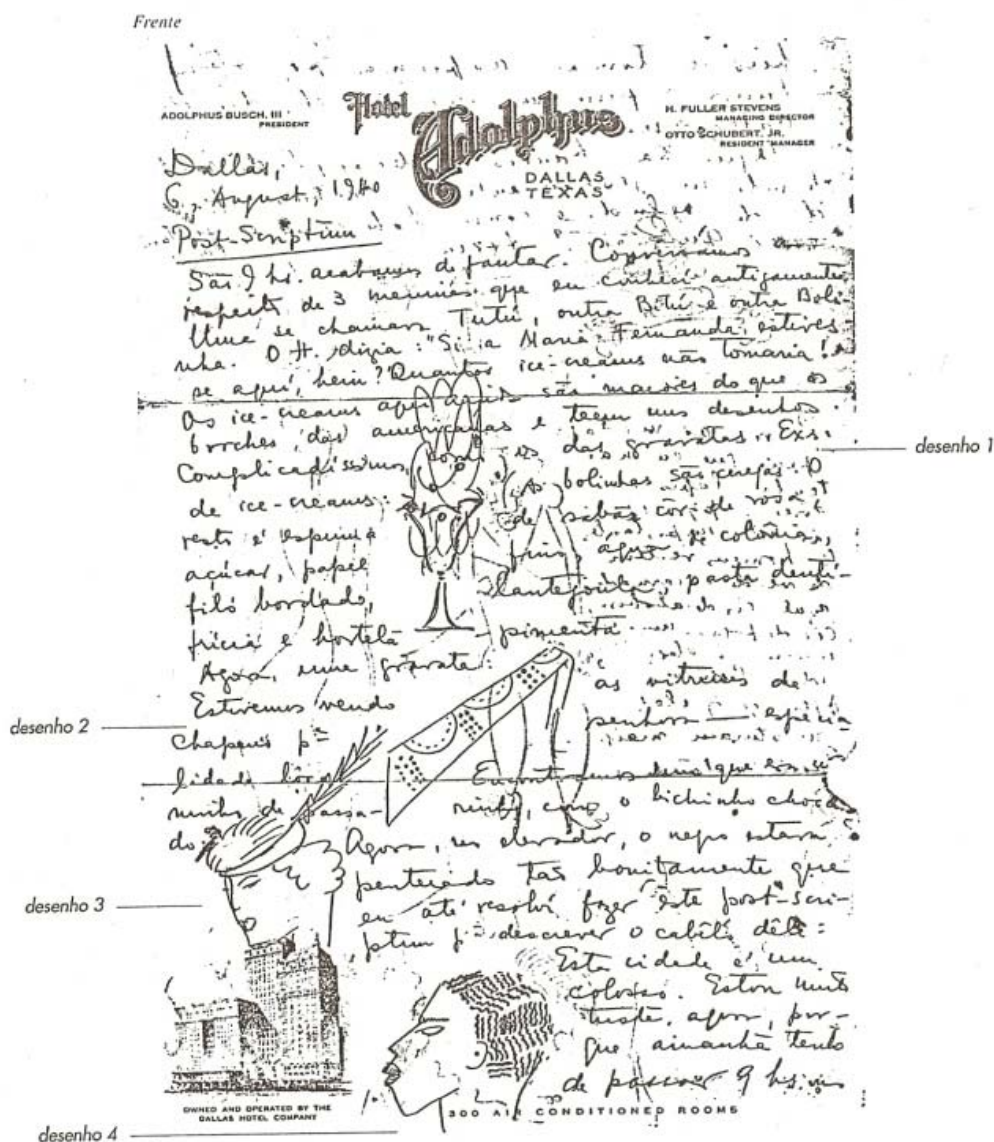 Frente
ADOLPHUS BUSCH, III
PRESIDENT
Hotel
Adolphus
DALLAS
TEXAS
H. FULLER STEVENS
MANAGING DIRECTOR
OTTO SCHUBERT, JR.
RESIDENT MANAGER
Dallas,
6, August, 1940
Post-Scriptum
São 9 hs. acabamos de jantar. Conversámos
respeito de 3 meninas que eu conheci antigamente
Uma se chamava Tutú, outra Bitú e outra Boli-
nha. O H. dizia: "Si a Maria Fernanda estives
se aqui, hein? Quantos ice-creams não tomaria!
Os ice-creams aqui são maiores do que os
broches das americanas e teem uns desenhos
complicadíssimos, como os das gravatas. Ex:
de ice-creams: As bolinhas são cerejas. O
resto é espuma de sabão côr de rosa
açúcar, papel fino, agua de colonia,
filó bordado, lantejoula, pasta denti-
frícia e hortelã-pimenta.
Agora, uma gravata:
Estivemos vendo as vitrines de
chapeus pª senhora — especia
lidade local. Encontramos um que era
ninho de passarinho, com o bichinho choca
do:
Agora, no elevador, o nego estava
penteado tão bonitamente que
eu até resolvi fazer este post-scri-
ptum pª descrever o cabêlo dêle:
Esta cidade é um
colosso. Estou muito
triste, agora, por-
que amanhã tenho
de passar 9 hs.
desenho 1
desenho 2
desenho 3
desenho 4
OWNED AND OPERATED BY THE
DALLAS HOTEL COMPANY
300 AIR CONDITIONED ROOMS